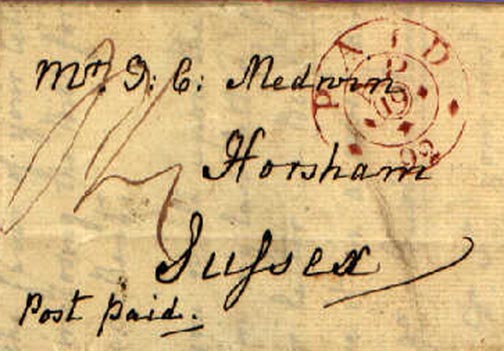 Mr. I: C: Medwin
Horsham
Sussex
Post paid.
PAID
19